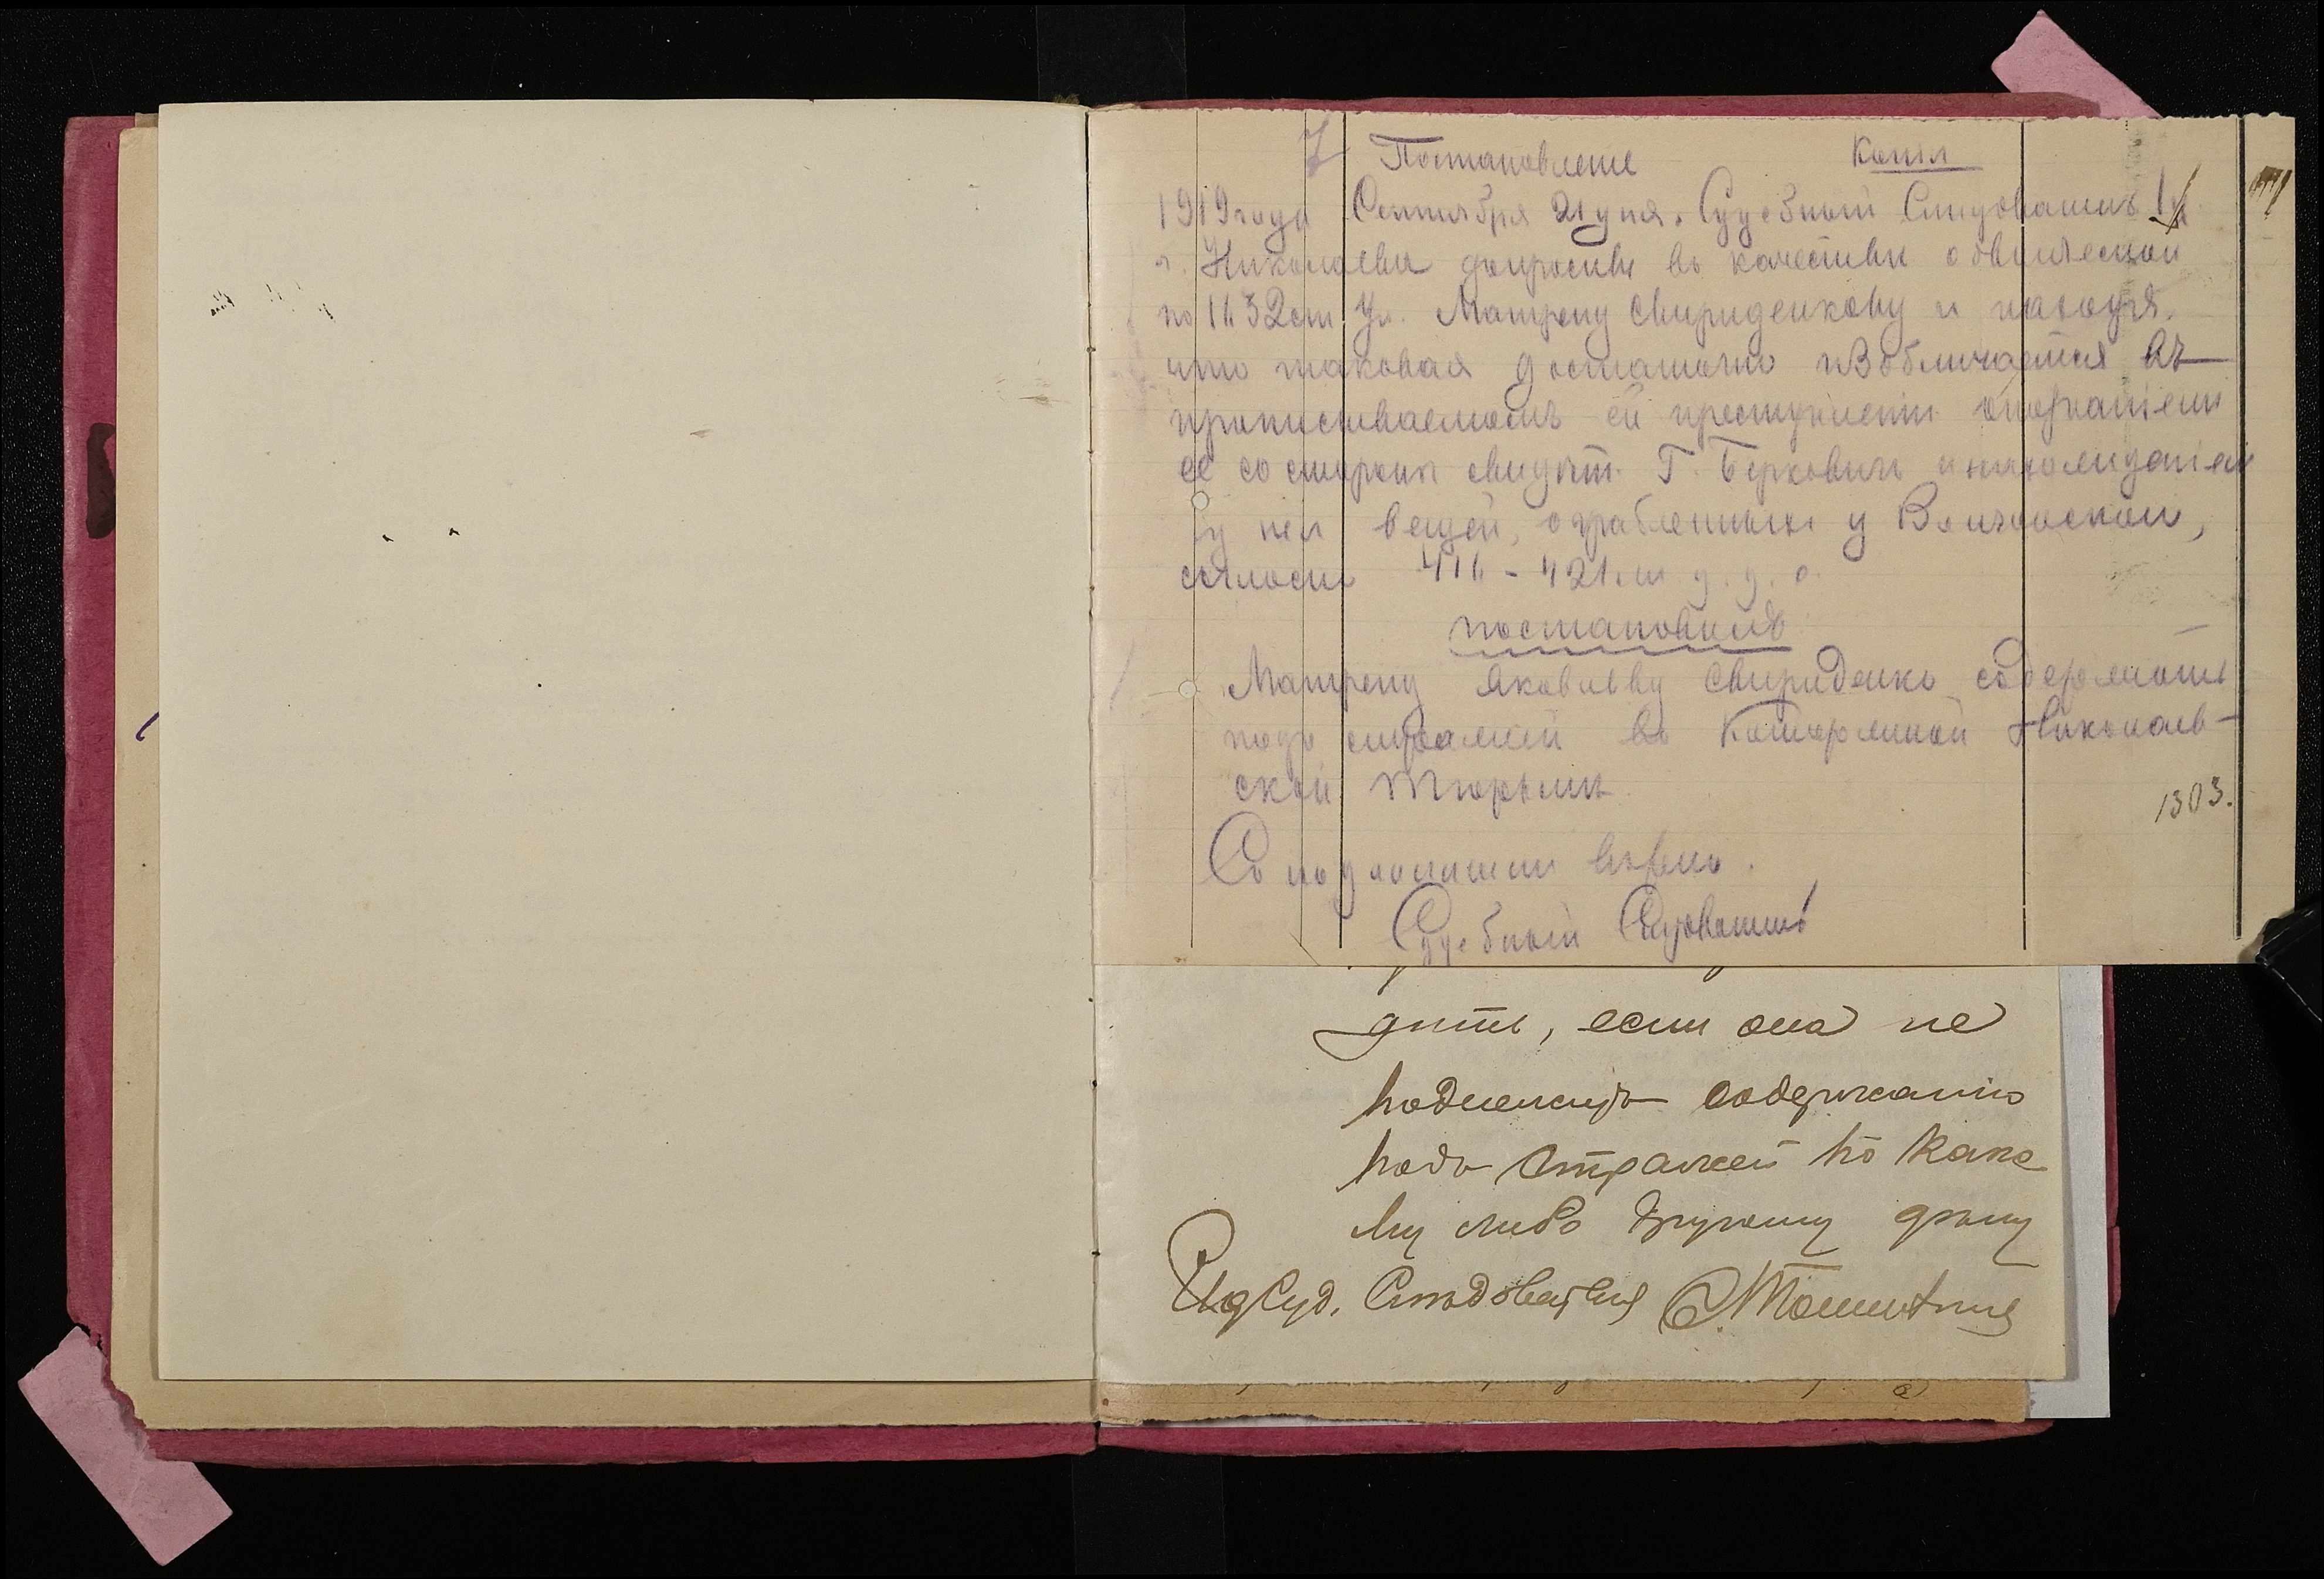 7 Постановленіе Копія
1919 года Сентября 21 дня. Судебный Следователь
г. Николаева допросивъ въ качестве обвиняемой
по 1632 ст Ул. Матрену Свириденкову и находя,
что таковая достаточно изобличается въ
приписываемомъ ей преступленіи
ее со свидѣт. Г. Берковичъ и нахожденіемъ
у нея вещей, ограбленныхъ у
согласно 416 - 421 ст у. у. с.
постановилъ
Матрену Яковлевну Свириденко содержать
подъ стражей въ Каторжной Николаев-
ской тюрьмѣ
1303.
Съ подлиннымъ вѣрно.
Судебный Следователь
дить, если она не
подлежитъ содержанію
подъ стражей по како
му либо другому делу
И д Суд. Следователя